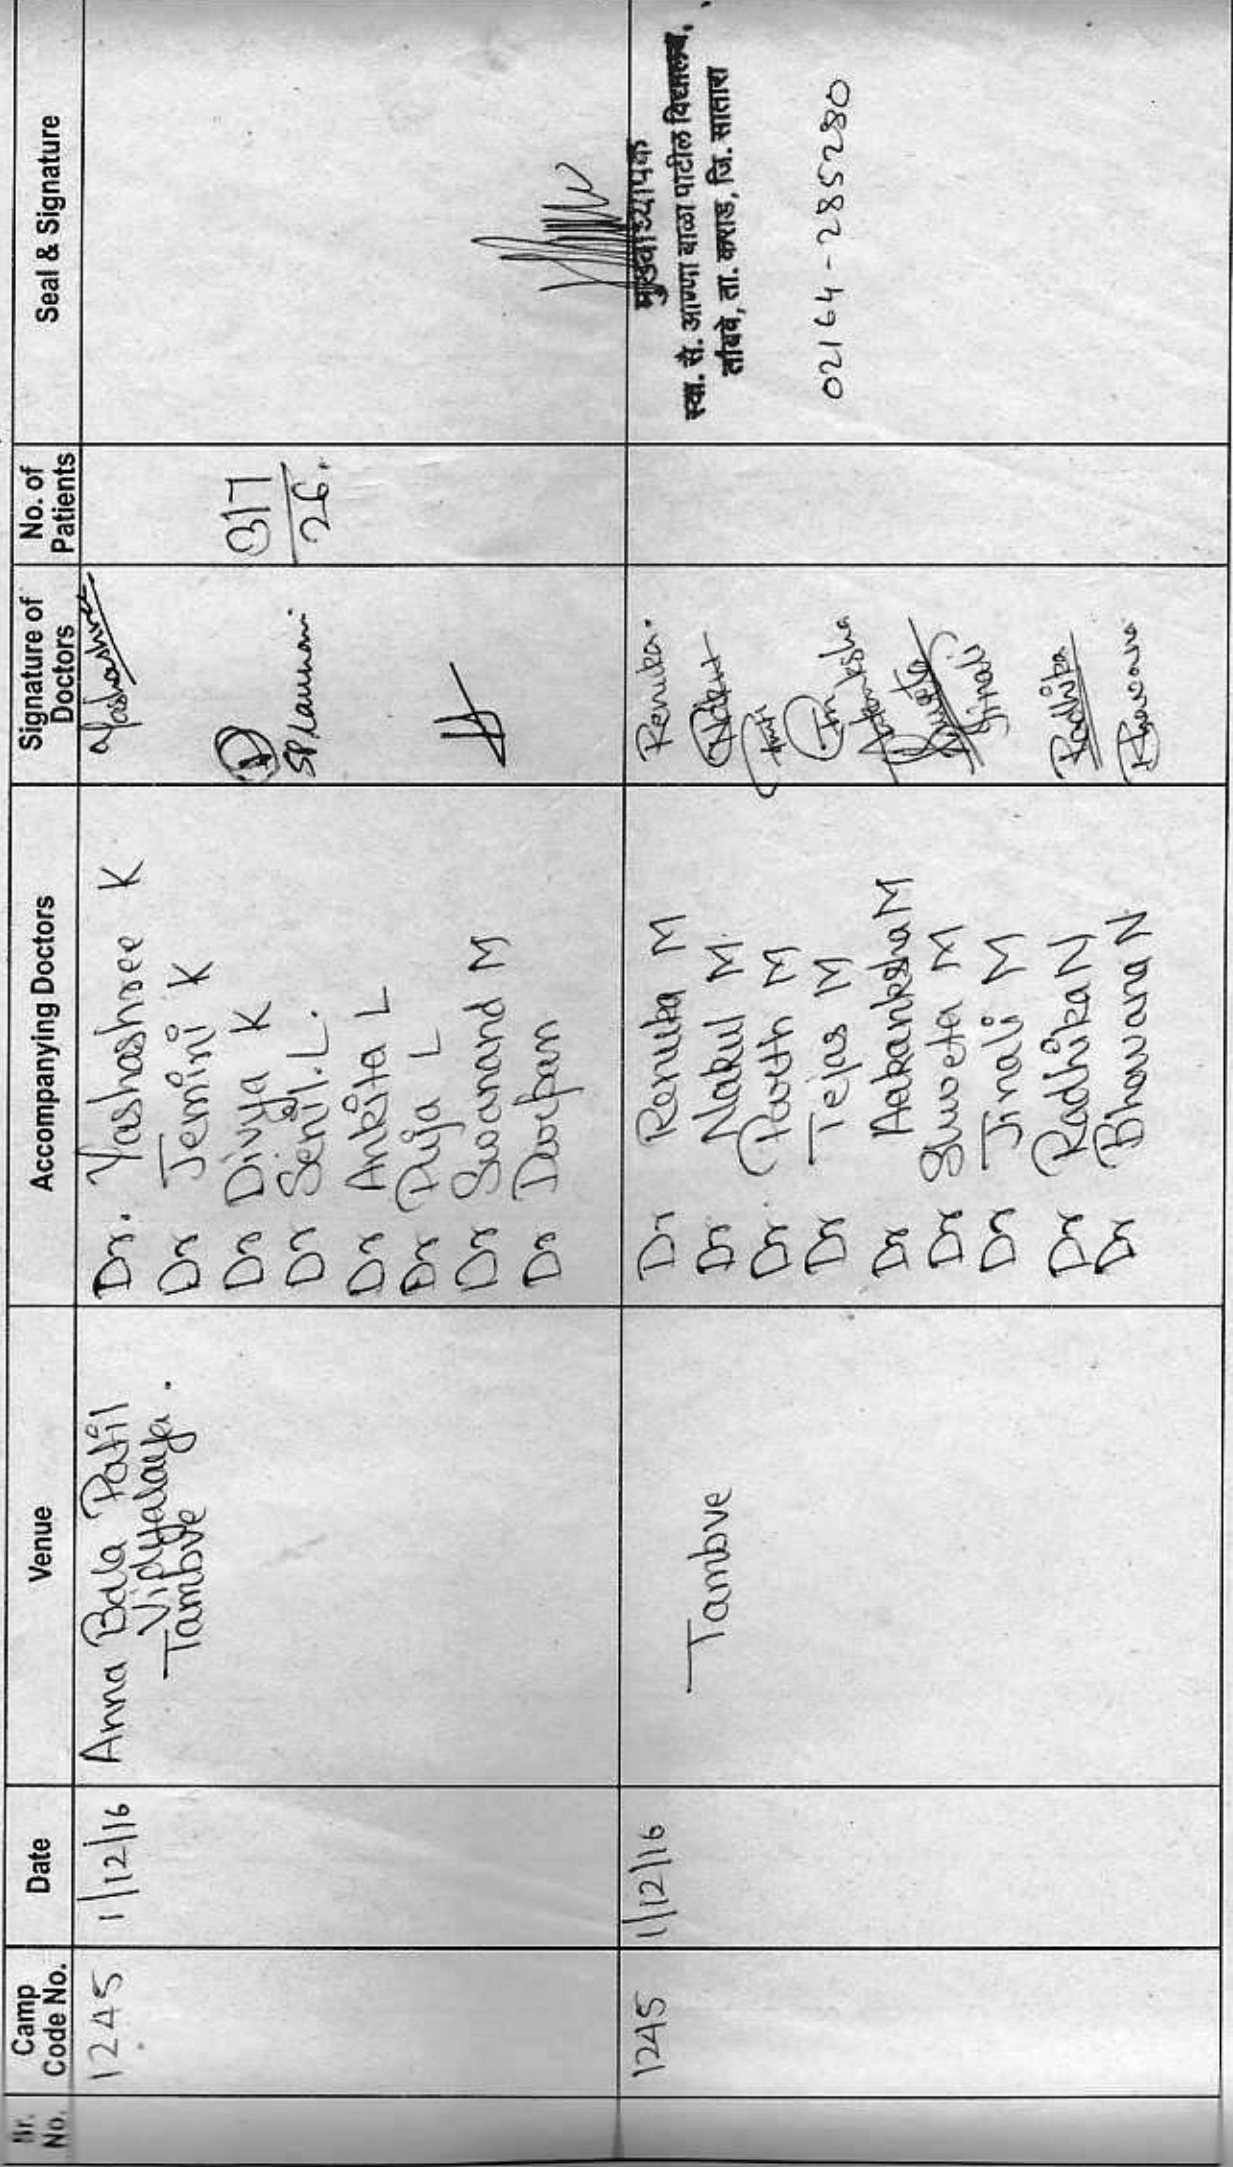 Sr. No.
Camp Code No.
Date
Venue
Accompanying Doctors
Signature of Doctors
No. of Patients
Seal & Signature
1245
1/12/16
Anna Bala Patil
Vidyalaya.
Tambve
Dr. Yashashree K
Dr Jemini K
Dr Divya K
Dr L.
Dr Ankita L
Dr Puja L
Dr Swanand M
Dr Darpan
Yashashree
317
26.
1245
1/12/16
Tambve
Dr Renuka M
Dr Nakul M.
Dr. Parth M
Dr Tejas M
Dr Aakanksha M
Dr Shweta M
Dr Jinali M
Dr Radhika N
Dr Bhawana N
Renuka.
Aakanksha
Jinali
Radhika
Bhawana
मुख्याध्यापक
स्वा. सै. आण्णा बाळा पाटील विद्यालय,
तांबवे, ता. कराड, जि. सातारा
02164-285280